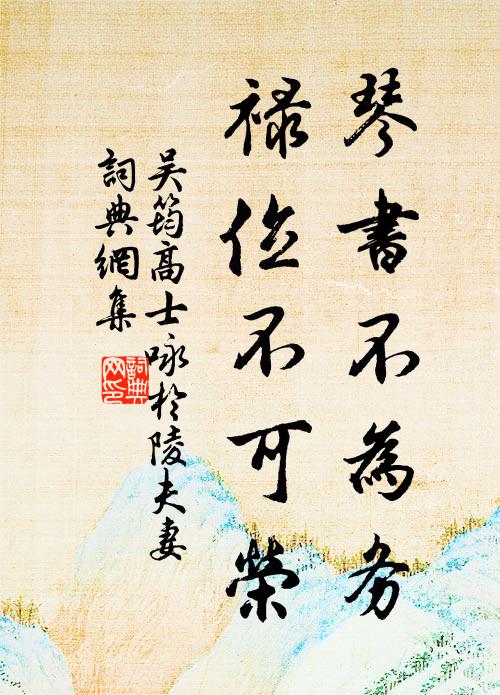 琴書不為务
禄位不可榮
吴筠高士咏於陵夫妻
詞典網集
詞典網印